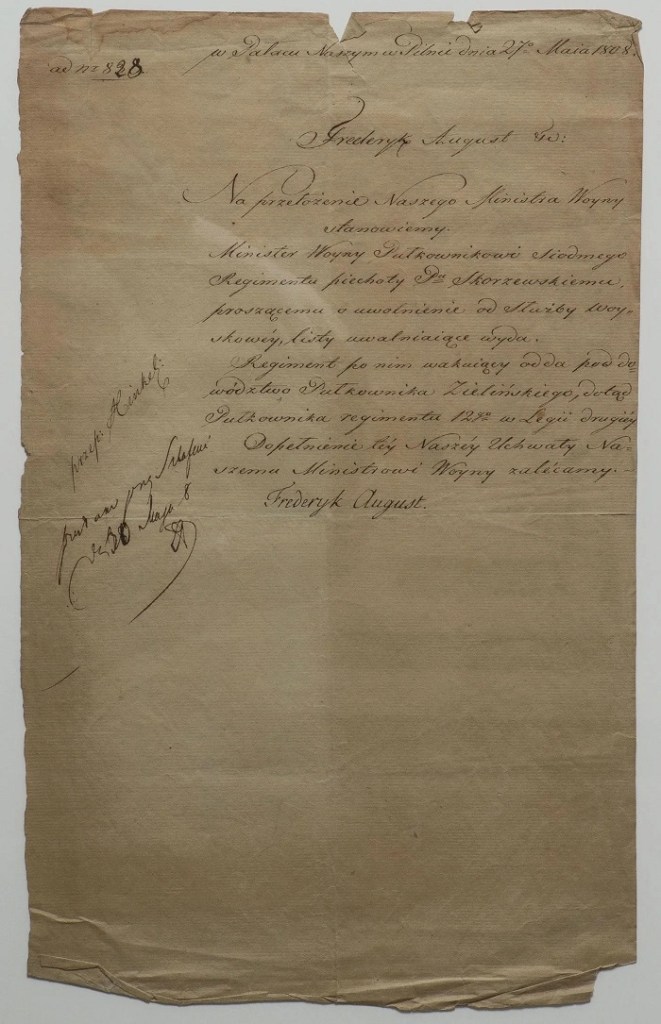 w Pałacu Naszym w Pilnic dnia 27º Maia 1808.
ad nr 828
Frederyk August &c:
Na przełożenie Naszego Ministra Woyny
stanowiemy.
Minister Woyny Pułkownikowi siodmego
Regimentu piechoty Pnu Skorzewskiemu,
proszącemu o uwolnienie od służby woy-
skowéy, listy uwalniaiące wyda.
Regiment po nim wakuiący odda pod do-
wództwo Pułkownika Zielińskiego, dotąd
Pułkownika regimentu 12go w Legii drugiéy
Dopełnienie téy Naszéy Uchwały Na-
szemu Ministrowi Woyny zalécamy.
Frederyk August.
przep: Hinkel:
przez Sztafetę
d. 30 Maja 8